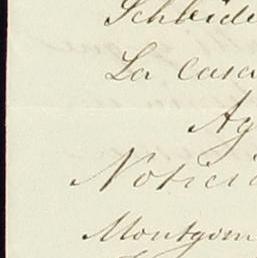 Schleide
La casa
Ag
Notici
Montgom